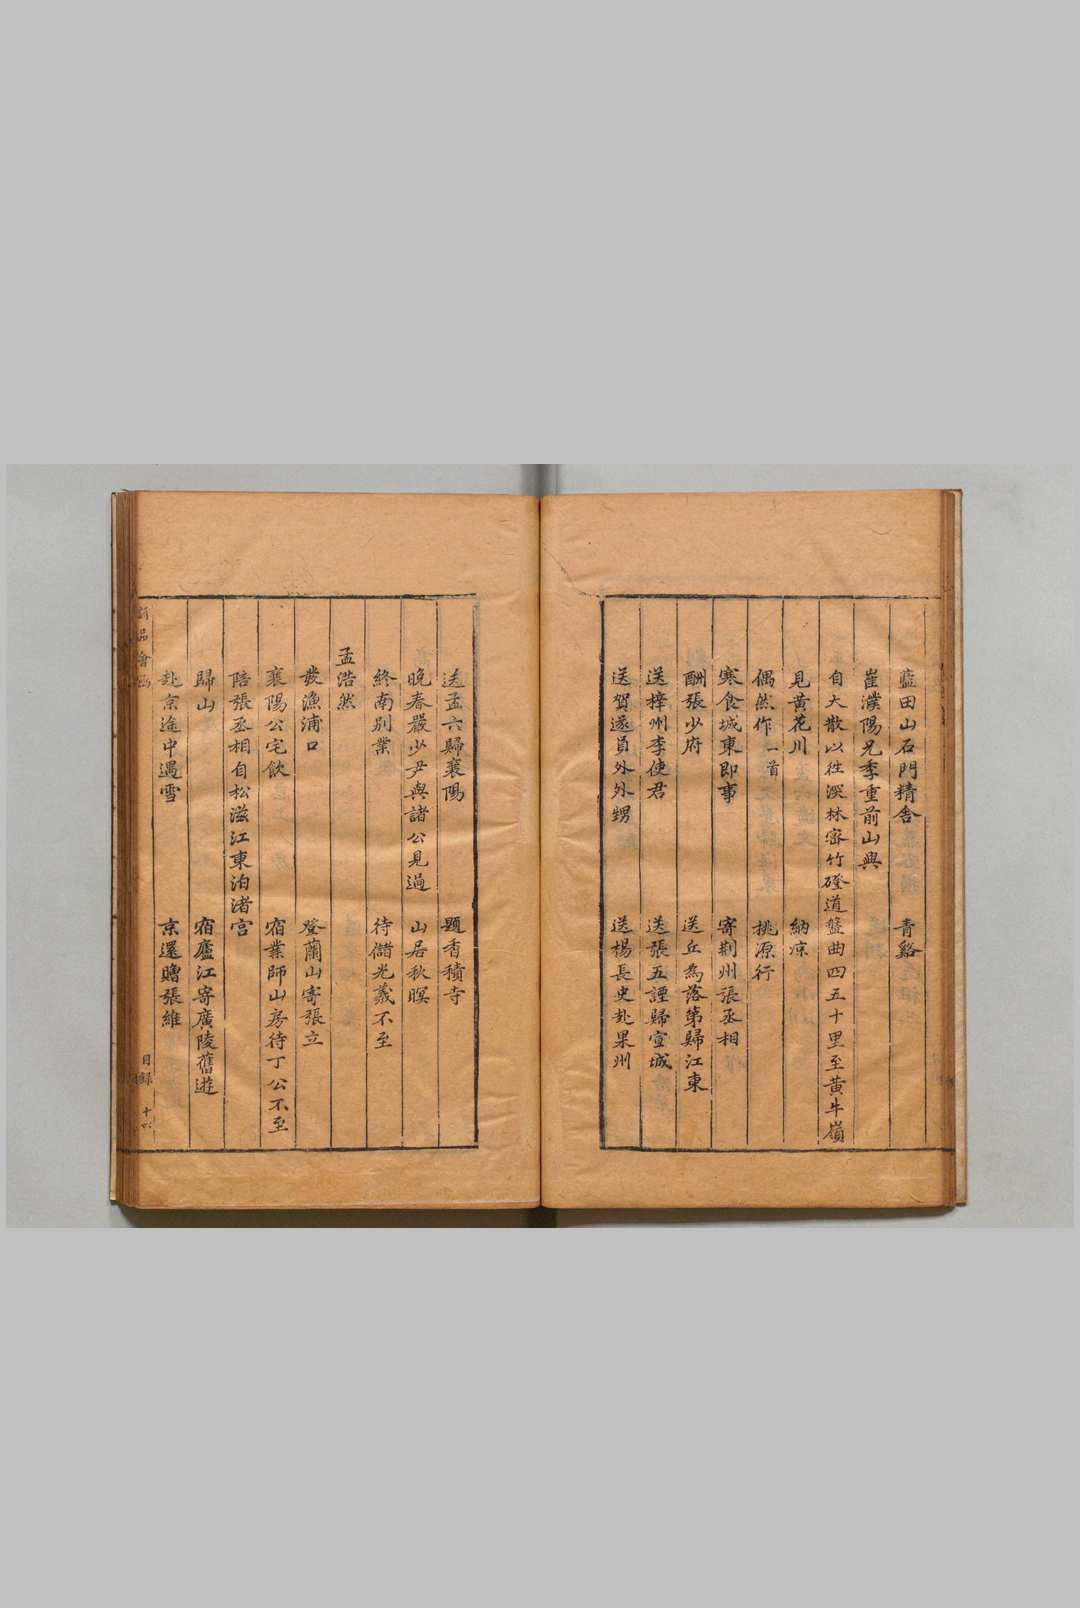 藍田山石門精舍 青谿
崔濮陽兄季重前山興
自大散以徃深林密竹磴道盤曲四五十里至黃牛嶺
見黃花川 納凉
偶然作一首 桃源行
寒食城東即事 寄荆州張丞相
酬張少府 送丘為落第歸江東
送梓州李使君 送張五諲歸宣城
送賀遂員外外甥 送楊長史赴果州
送孟六歸襄陽 題香積寺
晚春嚴少尹與諸公見過 山居秋暝
終南別業 待儲光羲不至
孟浩然
發漁浦口 登蘭山寄張立
襄陽公宅飲 宿業師山房待丁公不至
陪張丞相自松滋江東泊渚宮
歸山 宿廬江寄廣陵舊遊
赴京途中遇雪 京還贈張維
品會函 目錄 十六